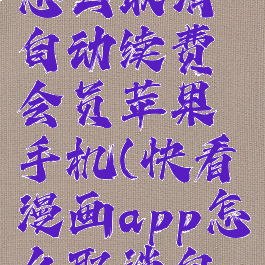 怎么取消
自动续费
会员苹果
手机(快看
漫画app怎
么取消自